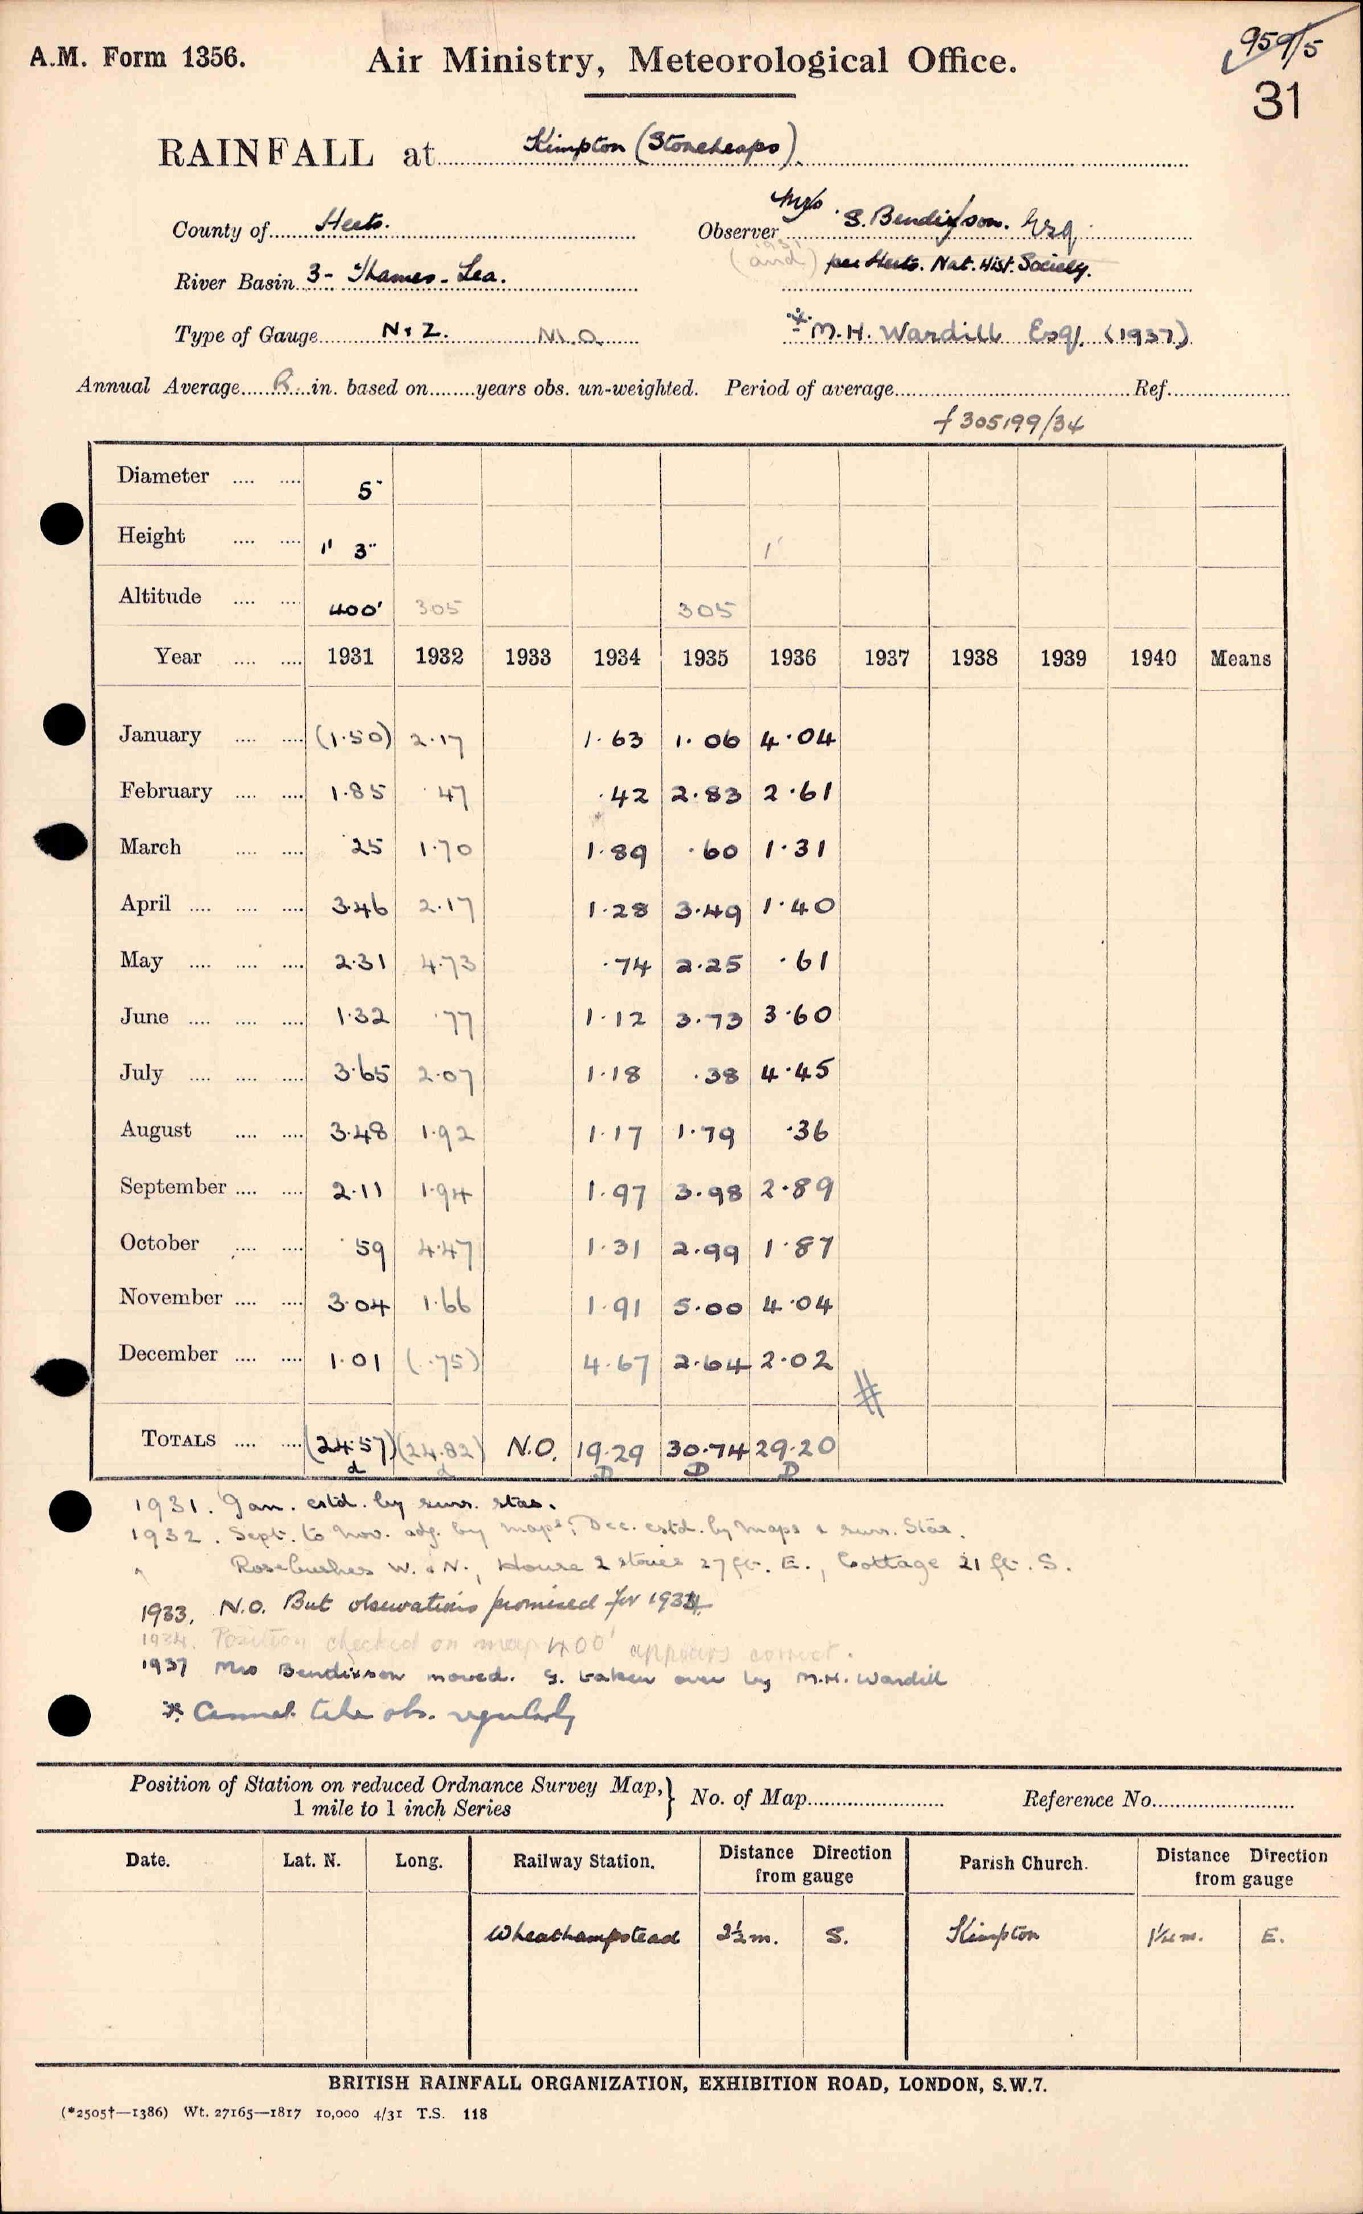 A.M. Form 1356. Air Ministry, Meteorological Office. 959/5
31
RAINFALL at Kimpton (Stoneheaps).
County of Herts. Observer Mrs S. Bendixson. Esq
(and 1931) per Herts. Nat. Hist. Society.
River Basin 3- Thames - Lea.
Type of Gauge N & Z. M.O. * M.H. Wardill Esq. (1937)
Annual Average R in. based on years obs. un-weighted. Period of average Ref.
f 305199/34
Diameter 5"
Height 1' 3" 1'
Altitude 400' 305 305
Year 1931 1932 1933 1934 1935 1936 1937 1938 1939 1940 Means
January (1.50) 2.17 1.63 1.06 4.04
February 1.85 .47 .42 2.83 2.61
March .25 1.70 1.89 .60 1.31
April 3.46 2.17 1.28 3.49 1.40
May 2.31 4.73 .74 2.25 .61
June 1.32 .77 1.12 3.73 3.60
July 3.65 2.07 1.18 .38 4.45
August 3.48 1.92 1.17 1.79 .36
September 2.11 1.94 1.97 3.98 2.89
October .59 4.47 1.31 2.99 1.87
November 3.04 1.66 1.91 5.00 4.04
December 1.01 (.75) 4.67 2.64 2.02
#
TOTALS (24.57) (24.82) N.O. 19.29 30.74 29.20
d d D D D
1931. Jan. estd. by surr. stas.
1932. Sept. to Nov. adj. by maps; Dec. estd. by maps & surr. Stas.
" Rosebushes W. & N., House 2 stories 27 ft. E., Cottage 21 ft. S.
1933. N.O. But observations promised for 1934
1934. Position checked on map 400' appears correct.
1937 Mrs Bendixson moved. G. taken over by M.H. Wardill
* Cannot take obs. regularly
Position of Station on reduced Ordnance Survey Map, 1 mile to 1 inch Series } No. of Map Reference No.
Date. Lat. N. Long. Railway Station. Distance Direction from gauge Parish Church. Distance Direction from gauge
Wheathampstead 2½ m. S. Kimpton 1¼ m. E.
BRITISH RAINFALL ORGANIZATION, EXHIBITION ROAD, LONDON, S.W.7.
(*2505†—1386) Wt. 27165—1817 10,000 4/31 T.S. 118